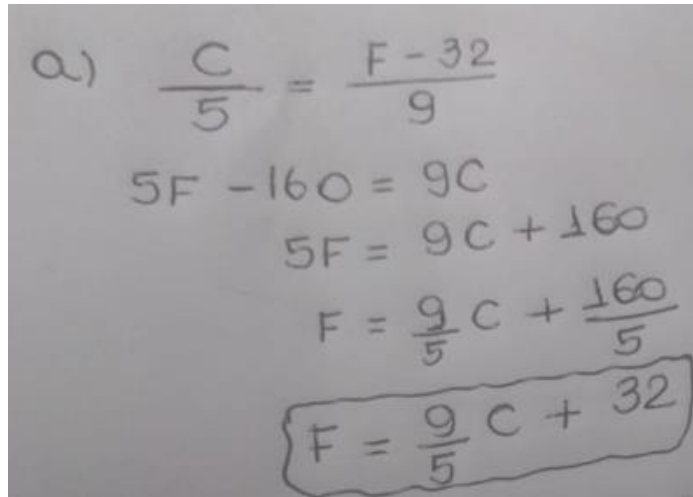 a) C/5 = F - 32/9
5F - 160 = 9C
5F = 9C + 160
F = 9/5 C + 160/5
F = 9/5 C + 32